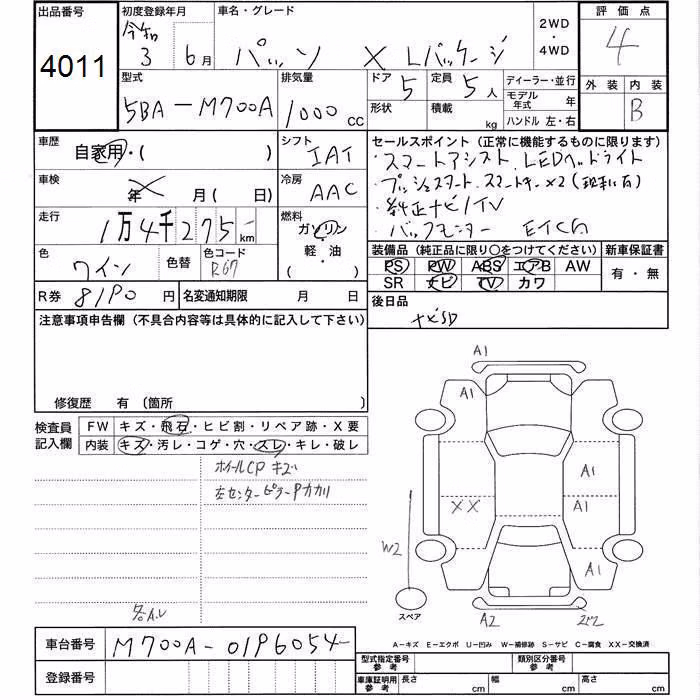 出品番号 初度登録年月 車名・グレード 2WD・4WD 評価点
4011 令和 3 6月 パッソ X Lパッケージ 4
型式 排気量 ドア 5 定員 5人 ディーラー・並行 外装 内装
5BA-M700A 1000cc 形状 積載 kg モデル年式 年 B
ハンドル 左・右
車歴 自家用・( ) シフト IAT
セールスポイント (正常に機能するものに限ります)
・スマートアシスト LEDヘッドライト
・プッシュスタート スマートキー×2 (現車に有)
・純正ナビ/TV
・バックモニター ETC
車検 年 月(日) 冷房 AAC
走行 1万4千275km 燃料 ガソリン・軽・油・( )
色 ワイン 色替 色コード R67
装備品 (純正品に限り〇をつけてください) 新車保証書
PS PW ABS エアB AW 有・無
SR ナビ TV カワ
R券 8190円 名変通知期限 月 日
後日品
ナビSD
注意事項申告欄 (不具合内容等は具体的に記入して下さい)
修復歴 有 〔箇所 〕
検査員記入欄 FW キズ・飛石・ヒビ割・リペア跡・X要
内装 キズ・汚レ・コゲ・穴・スレ・キレ・破レ
ホイールCP キズ
左センターピラー
各A.U
A1
A1
A1
XX A1
W2
A1
スペア
A2
車台番号 M700A-0196054
登録番号
A-キズ E-エクボ U-凹み W-補修跡 S-サビ C-腐食 XX-交換済
型式指定番号参考 類別区分番号参考
車庫証明用参考 長さ cm 幅 cm 高さ cm